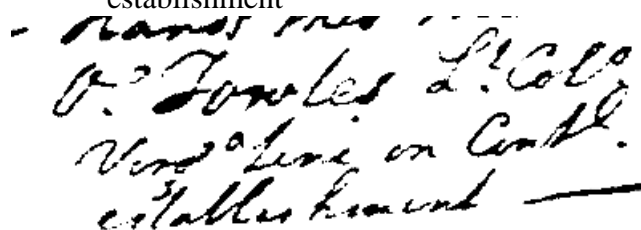 establishment
hands this
O.° Towles Lt. Colo
Virgª Line on Contl.
establishment —